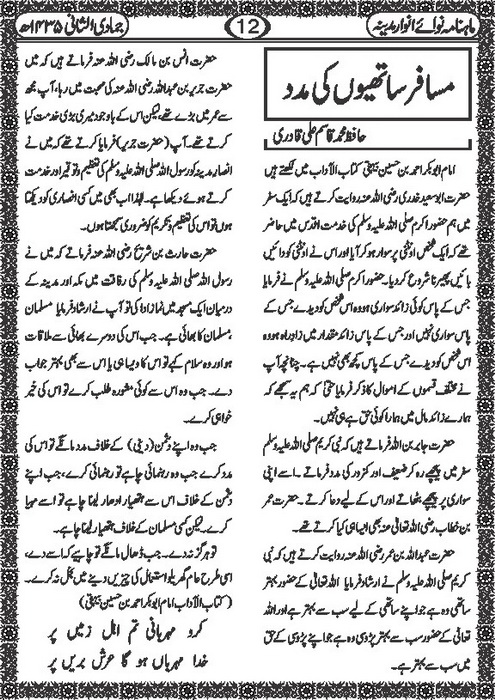 ماہنامہ نوائے انوار مدینہ
12
جمادی الثانی ۱۴۳۵ھ
مسافر ساتھیوں کی مدد
حافظ محمد قاسم علی قادری
امام ابوبکر احمد بن حسین بیہقی کتاب الآداب میں لکھتے ہیں
حضرت ابوسعید خدری رضی اللہ عنہ روایت کرتے ہیں کہ ایک سفر
میں ہم حضور اکرم صلی اللہ علیہ وسلم کی خدمت اقدس میں حاضر
تھے کہ ایک شخص اونٹنی پر سوار ہو کر آیا اور اس نے اونٹنی کو دائیں
بائیں پھیرنا شروع کر دیا۔ حضور اکرم صلی اللہ علیہ وسلم نے فرمایا
جس کے پاس کوئی زائد سواری ہو وہ اس شخص کو دیدے جس کے
پاس سواری نہیں اور جس کے پاس زائد مقدار میں زاد راہ ہو وہ
اس شخص کو دیدے جس کے پاس کچھ بھی نہیں ہے۔ چنانچہ آپ
نے مختلف قسموں کے اموال کا ذکر فرمایا حتیٰ کہ ہم یہ سمجھے کہ
ہمارے زائد مال میں ہمارا کوئی حق ہے ہی نہیں۔
حضرت جابر بن عبد اللہ فرماتے ہیں کہ نبی کریم صلی اللہ علیہ وسلم
سفر میں پیچھے رہ کر ضعیف اور کمزور کی مدد فرماتے۔ اسے اپنی
سواری پر پیچھے بٹھاتے اور اس کے لیے دعا کرتے۔ حضرت عمر
بن خطاب رضی اللہ تعالیٰ عنہ بھی ایسا ہی کیا کرتے تھے۔
حضرت عبد اللہ بن عمر رضی اللہ عنہ روایت کرتے ہیں کہ نبی
کریم صلی اللہ علیہ وسلم نے ارشاد فرمایا اللہ تعالیٰ کے حضور بہتر
ساتھی وہ ہے جو اپنے ساتھی کے لیے سب سے بہتر ہے اور اللہ
تعالیٰ کے حضور سب سے بہتر پڑوسی وہ ہے جو اپنے پڑوسی کے حق
میں سب سے بہتر ہے۔
حضرت انس بن مالک رضی اللہ عنہ فرماتے ہیں کہ میں
حضرت جریر بن عبد اللہ رضی اللہ عنہ کی صحبت میں رہا، آپ مجھ
سے عمر میں بڑے تھے، لیکن اس کے باوجود میری بڑی خدمت کیا
کرتے تھے۔ آپ (حضرت جریر) فرمایا کرتے تھے کہ میں نے
انصار مدینہ کو رسول اللہ صلی اللہ علیہ وسلم کی تعظیم و توقیر اور خدمت
کرتے ہوئے دیکھا ہے۔ لہٰذا اب بھی میں کسی انصاری کو دیکھتا
ہوں تو اس کی تعظیم و تکریم کو ضروری سمجھتا ہوں۔
حضرت حارث بن شریح رضی اللہ عنہ فرماتے ہیں کہ میں نے
رسول اللہ صلی اللہ علیہ وسلم کی رفاقت میں مکہ اور مدینہ کے
درمیان ایک مسجد میں نماز ادا کی تو آپ نے ارشاد فرمایا مسلمان
مسلمان کا بھائی ہے۔ جب اس کی دوسرے بھائی سے ملاقات
ہو اور وہ سلام کہے تو اس کا ویسا ہی یا اس سے بھی بہتر جواب
دے۔ جب وہ اس سے کوئی مشورہ طلب کرے تو اس کی خیر
خواہی کرے۔
جب وہ اپنے دشمن (دینی) کے خلاف مدد مانگے تو اس کی
مدد کرے جب وہ رہنمائی چاہے تو رہنمائی کرے، جب اپنے
دشمن کے خلاف اس سے ہتھیار ادھار لینا چاہے تو اسے مہیا
کرے۔ لیکن کسی مسلمان کے خلاف ہتھیار لینا چاہے۔
تو ہرگز نہ دے۔ جب ڈھال مانگے تو چاہیے کہ اسے دے،
اسی طرح عام گھریلو استعمال کی چیزیں دینے میں بخل نہ کرے۔
(کتاب الآداب امام ابوبکر احمد بن حسین بیہقی)
کرو مہربانی تم اہل زمیں پر
خدا مہرباں ہو گا عرش بریں پر